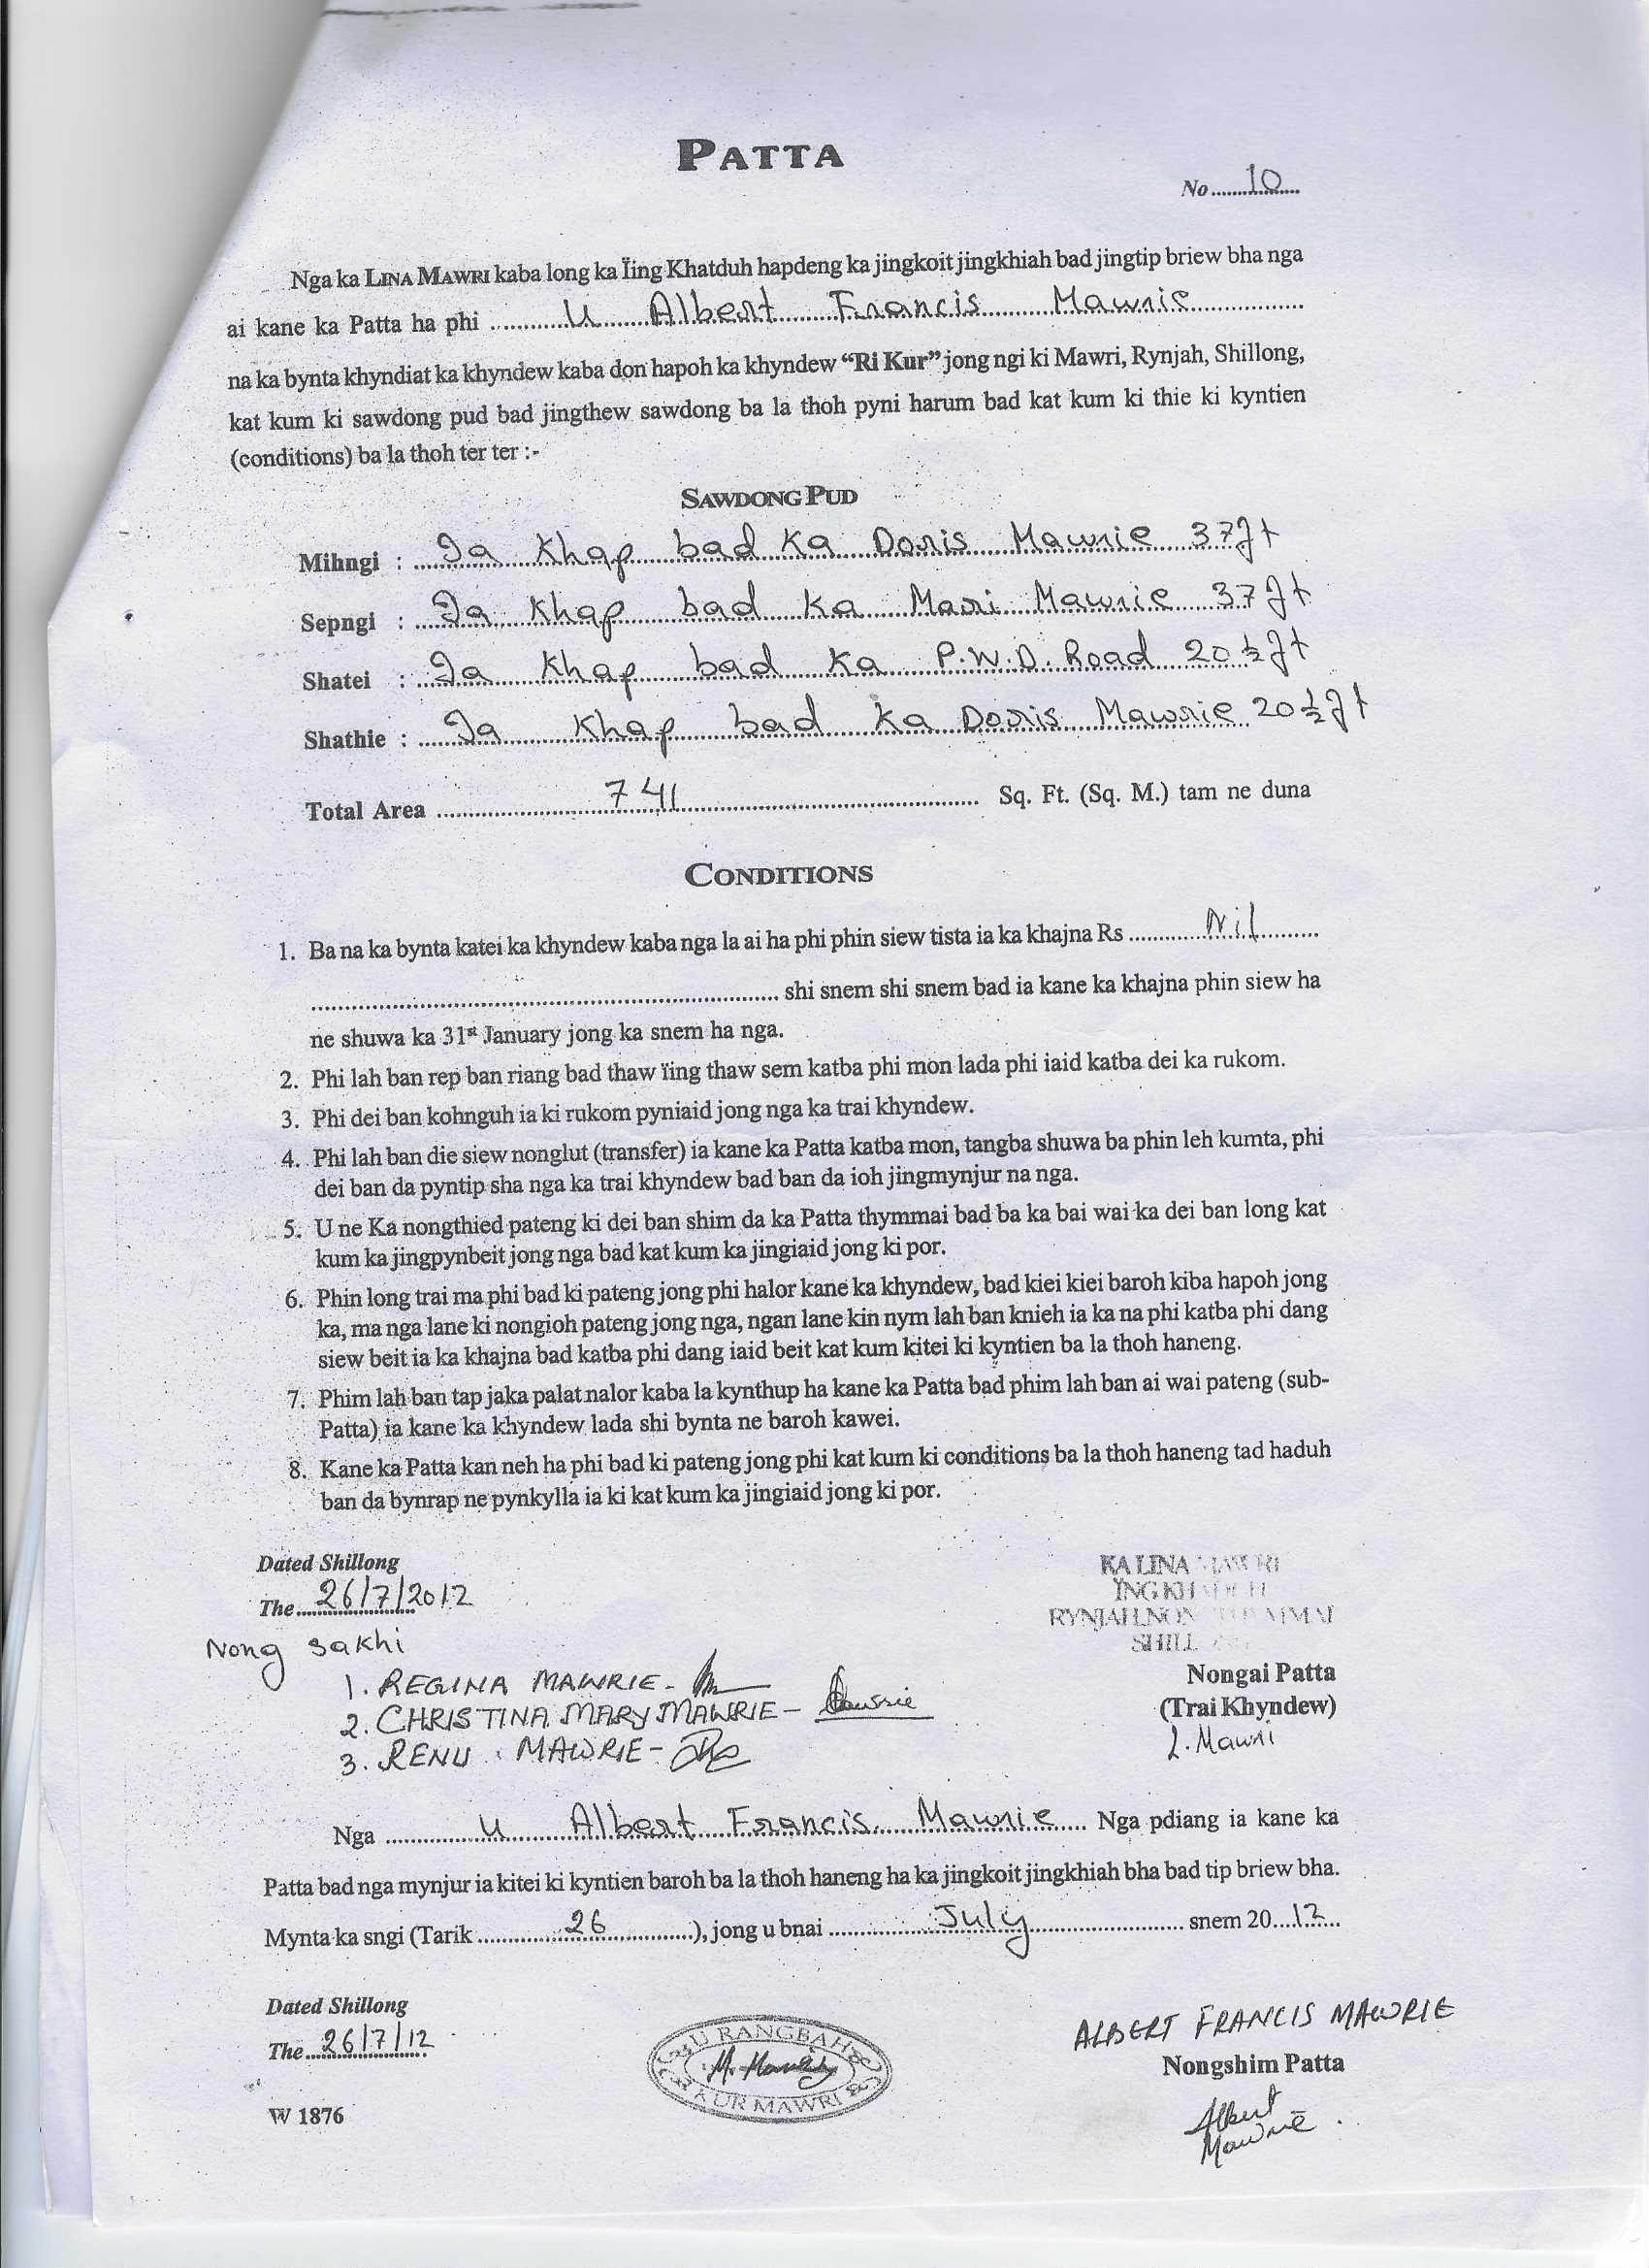 PATTA
No 10
Nga ka LINA MAWRI kaba long ka Ïing Khatduh hapdeng ka jingkoit jingkhiah bad jingtip briew bha nga
ai kane ka Patta ha phi U Albert Francis Mawrie
na ka bynta khyndiat ka khyndew kaba don hapoh ka khyndew “Ri Kur” jong ngi ki Mawri, Rynjah, Shillong,
kat kum ki sawdong pud bad jingthew sawdong ba la thoh pyni harum bad kat kum ki thie ki kyntien
(conditions) ba la thoh ter ter :-
SAWDONG PUD
Mihngi : Ia khap bad ka Doris Mawrie 37 ft
Sepngi : Ia khap bad ka Mari Mawrie 37 ft
Shatei : Ia khap bad ka P.W.D. Road 20 ½ ft
Shathie : Ia khap bad ka Doris Mawrie 20 ½ ft
Total Area 741 Sq. Ft. (Sq. M.) tam ne duna
CONDITIONS
1. Ba na ka bynta katei ka khyndew kaba nga la ai ha phi phin siew tista ia ka khajna Rs Nil
shi snem shi snem bad ia kane ka khajna phin siew ha
ne shuwa ka 31st January jong ka snem ha nga.
2. Phi lah ban rep ban riang bad thaw ïing thaw sem katba phi mon lada phi iaid katba dei ka rukom.
3. Phi dei ban kohnguh ia ki rukom pyniaid jong nga ka trai khyndew.
4. Phi lah ban die siew nonglut (transfer) ia kane ka Patta katba mon, tangba shuwa ba phin leh kumta, phi
dei ban da pyntip sha nga ka trai khyndew bad ban da ioh jingmynjur na nga.
5. U ne Ka nongthied pateng ki dei ban shim da ka Patta thymmai bad ba ka bai wai ka dei ban long kat
kum ka jingpynbeit jong nga bad kat kum ka jingiaid jong ki por.
6. Phin long trai ma phi bad ki pateng jong phi halor kane ka khyndew, bad kiei kiei baroh kiba hapoh jong
ka, ma nga lane ki nongioh pateng jong nga, ngan lane kin nym lah ban knieh ia ka na phi katba phi dang
siew beit ia ka khajna bad katba phi dang iaid beit kat kum kitei ki kyntien ba la thoh haneng.
7. Phim lah ban tap jaka palat nalor kaba la kynthup ha kane ka Patta bad phim lah ban ai wai pateng (sub-
Patta) ia kane ka khyndew lada shi bynta ne baroh kawei.
8. Kane ka Patta kan neh ha phi bad ki pateng jong phi kat kum ki conditions ba la thoh haneng tad haduh
ban da bynrap ne pynkylla ia ki kat kum ka jingiaid jong ki por.
Dated Shillong
The 26/7/2012
KA LINA MAWRI
Nong sakhi
1. REGINA MAWRIE -
2. CHRISTINA MARY MAWRIE - Mawrie
3. RENU MAWRIE -
Nongai Patta
(Trai Khyndew)
L. Mawri
Nga U Albert Francis Mawrie Nga pdiang ia kane ka
Patta bad nga mynjur ia kitei ki kyntien baroh ba la thoh haneng ha ka jingkoit jingkhiah bha bad tip briew bha.
Mynta ka sngi (Tarik 26), jong u bnai July snem 2012
Dated Shillong
The 26/7/12
U RANGBAH
KUR MAWRI
ALBERT FRANCIS MAWRIE
Nongshim Patta
Albert
Mawrie
W 1876